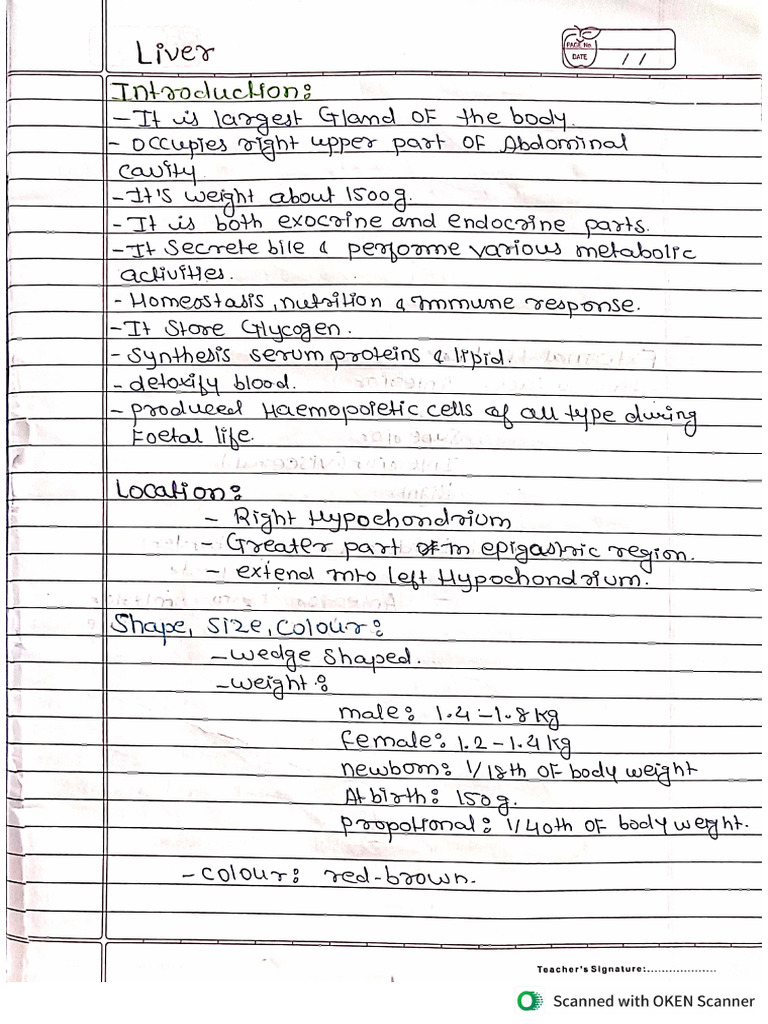 Liver
PAGE No.
DATE / /
Introduction:
- It is largest Gland of the body.
- occupies right upper part of Abdominal
cavity
- It's weight about 1500g.
- It is both exocrine and endocrine parts.
- It secrete bile & performe various metabolic
activities.
- Homeostasis, nutrition & immune response.
- It store Glycogen.
- Synthesis serum proteins & lipid.
- detoxify blood.
- produced Haemopoietic cells of all type during
Foetal life.
Location:
- Right Hypochondrium
- Greater part in epigastric region.
- extend into left Hypochondrium.
Shape, Size, Colour:
- wedge shaped.
- weight:
male: 1.4 - 1.8 kg
female: 1.2 - 1.4 kg
newborn: 1/18th of body weight
At birth: 150g.
propotional: 1/40th of body weight.
- colour: red-brown.
Teacher's Signature:...................
Scanned with OKEN Scanner